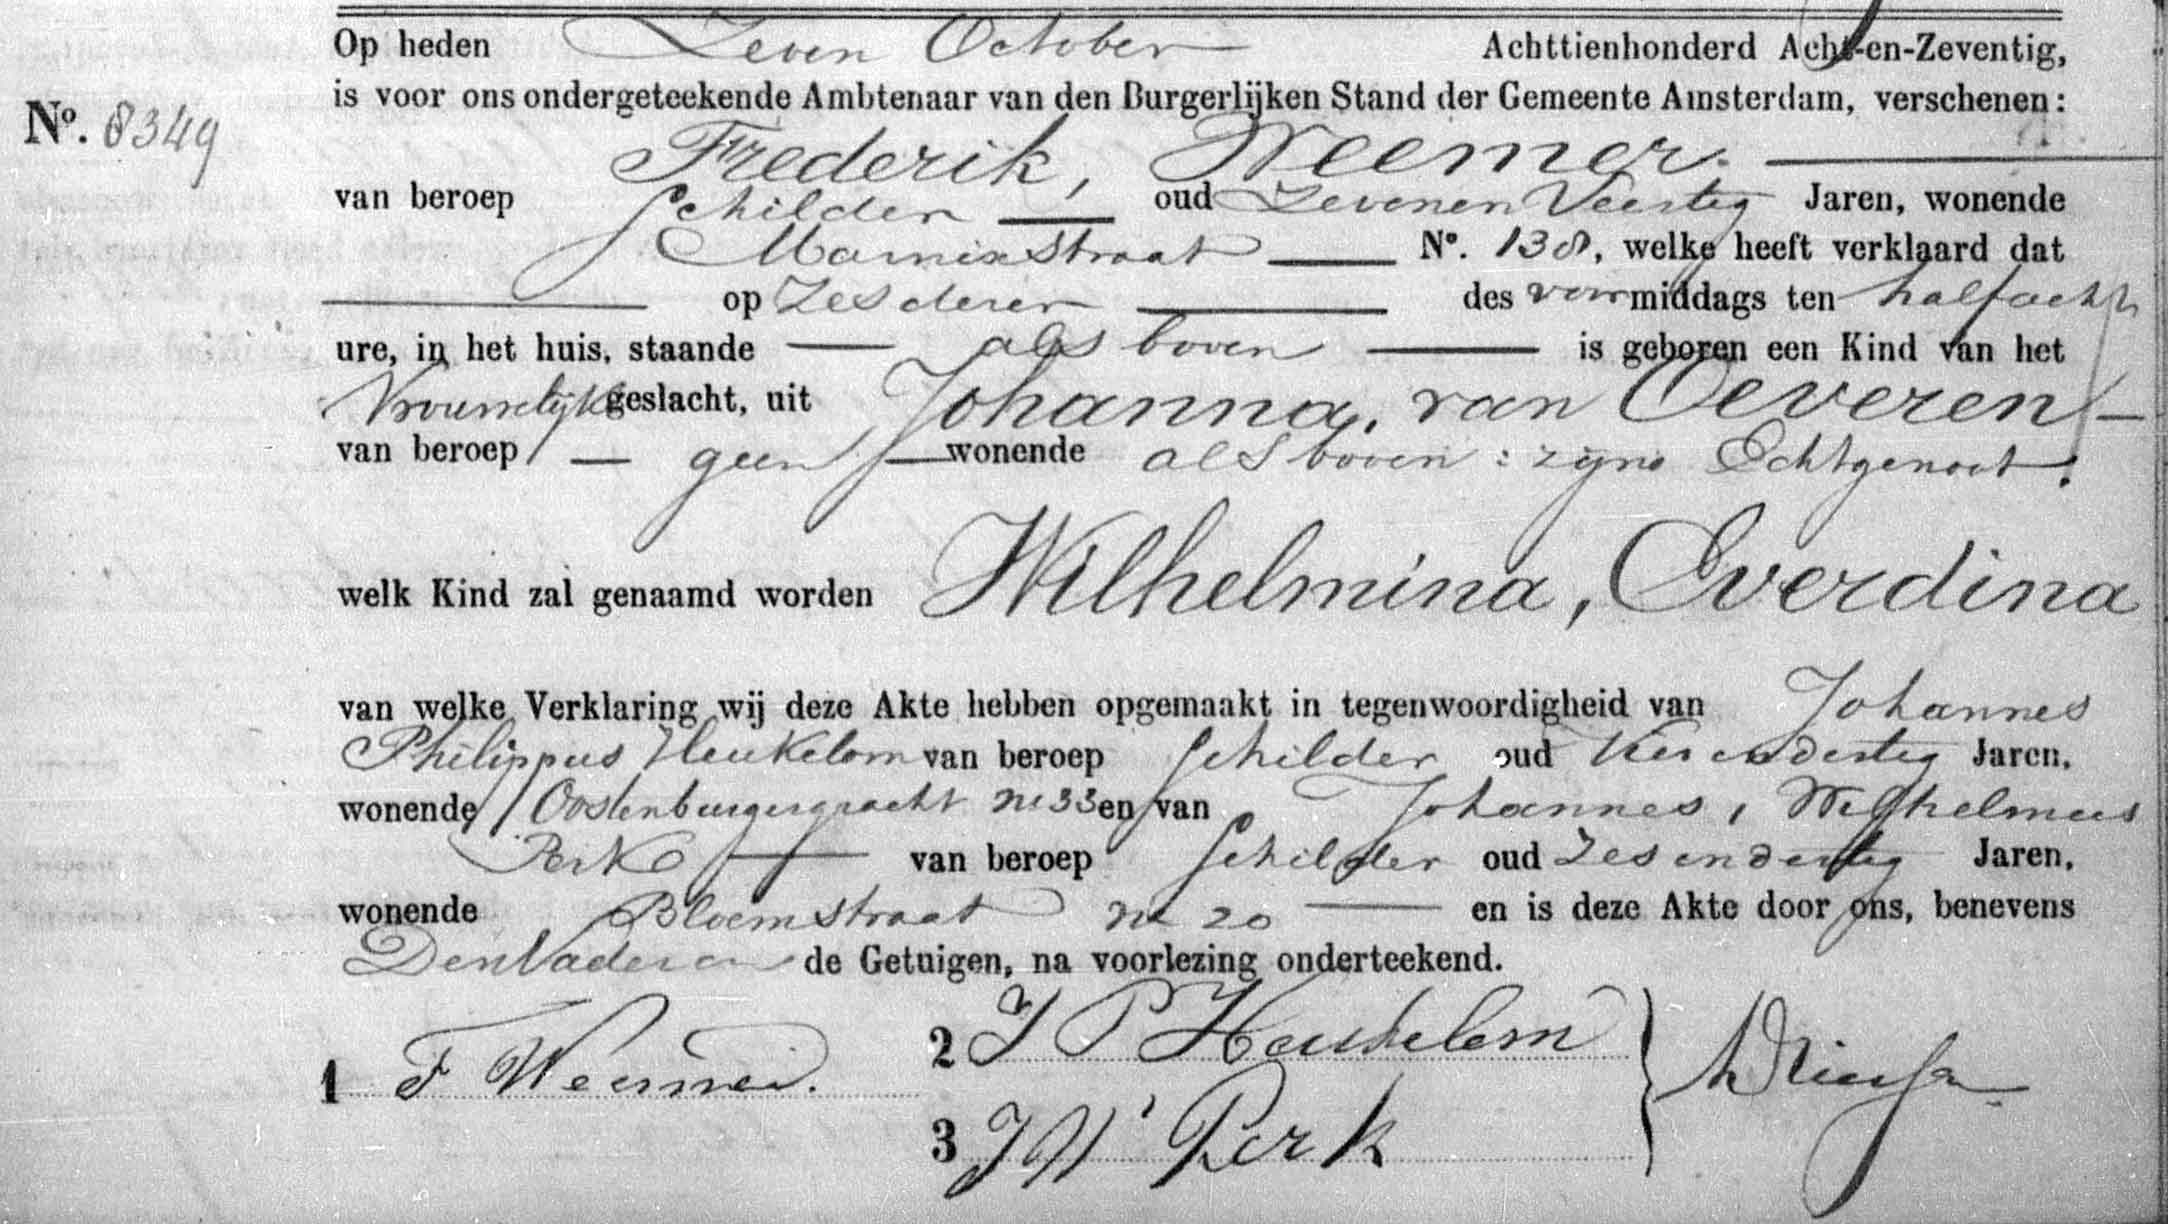 Op heden Zeven October Achttienhonderd Acht-en-Zeventig,
is voor ons ondergeteekende Ambtenaar van den Burgerlijken Stand der Gemeente Amsterdam, verschenen:
No. 8349
Frederik, Weemer.
van beroep Schilder oud Zevenen Veertig Jaren, wonende
Marnixstraat No. 138, welke heeft verklaard dat
op Zesdezer des voormiddags ten halfacht
ure, in het huis, staande als boven is geboren een Kind van het
Vrouwelijk geslacht, uit Johanna, van Oeveren
van beroep geen wonende als boven: zijne Echtgenoot.
welk Kind zal genaamd worden Wilhelmina, Everdina
van welke Verklaring wij deze Akte hebben opgemaakt in tegenwoordigheid van Johannes
Philippus Heukelom van beroep Schilder oud Vier en dertig Jaren,
wonende Oostenburgergracht No 33 en van Johannes, Wilhelmus
Perk van beroep Schilder oud Zes en dertig Jaren,
wonende Bloemstraat No 20 en is deze Akte door ons, benevens
Den Vader en de Getuigen, na voorlezing onderteekend.
1 F Weemer.
2 J P Heukelom
3 J W Perk